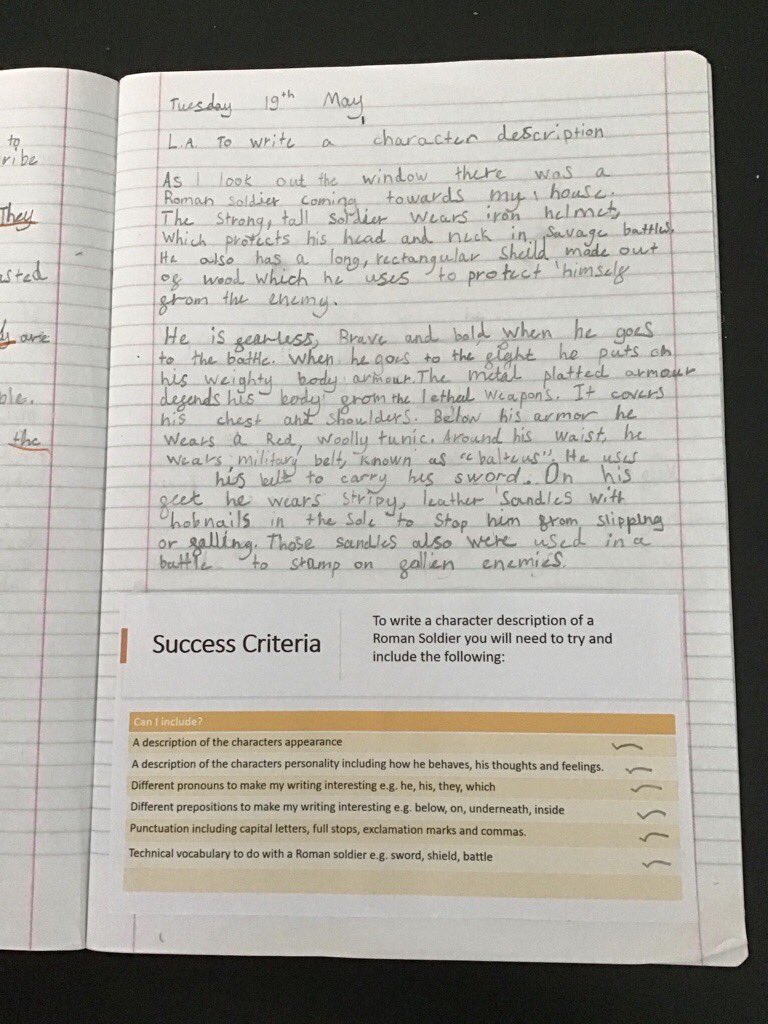 to
ribe
They
sted
are
ble.
the
Tuesday 19th May
L.A. To write a character description
As I look out the window there was a
Roman soldier coming towards my house.
The strong, tall soldier wears iron helmet,
which protects his head and neck in savage battles.
He also has a long, rectangular sheild made out
of wood which he uses to protect himself
from the enemy.
He is fearless, Brave and bold when he goes
to the battle. When he goes to the fight he puts on
his weighty body armour. The metal platted armour
defends his body from the lethel weapons. It covers
his chest and shoulders. Below his armor he
wears a Red, woolly tunic. Around his waist, he
wears military belt, known as "balteus". He uses
his belt to carry his sword. On his
feet he wears stripy, leather sandles with
hobnails in the sole to stop him from slipping
or falling. Those sandles also were used in a
battle to stamp on fallen enemies.
Success Criteria
To write a character description of a
Roman Soldier you will need to try and
include the following:
Can I include?
A description of the characters appearance
A description of the characters personality including how he behaves, his thoughts and feelings.
Different pronouns to make my writing interesting e.g. he, his, they, which
Different prepositions to make my writing interesting e.g. below, on, underneath, inside
Punctuation including capital letters, full stops, exclamation marks and commas.
Technical vocabulary to do with a Roman soldier e.g. sword, shield, battle